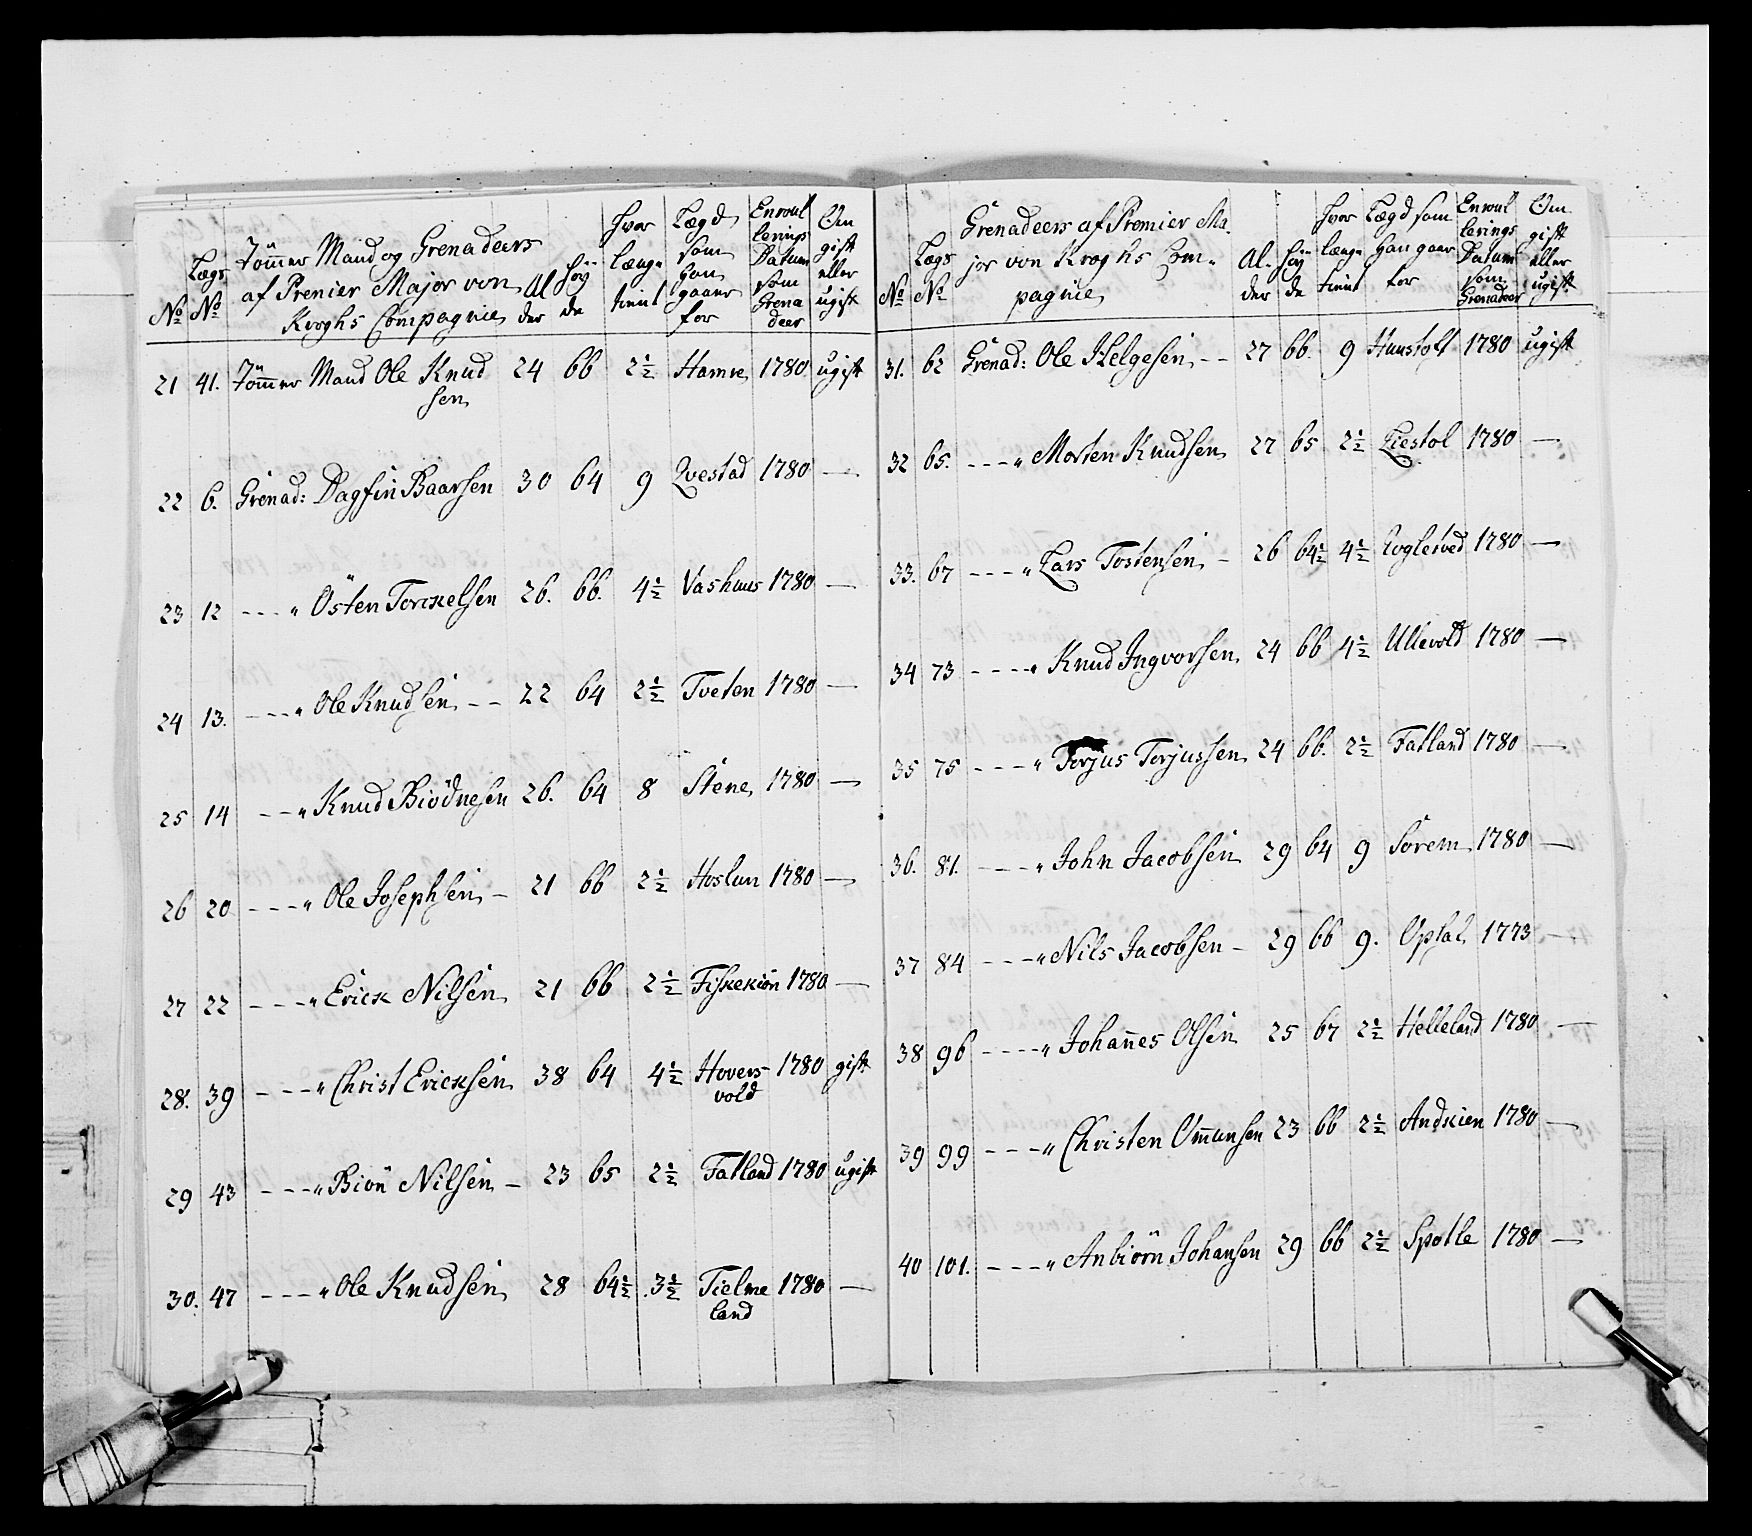 No Lægs No Tömmer Mand og Grenadeers af Premier Major von Kroghs Compagnie Alder Höyde hvor længe tient Lægd som han gaaer for Enroulerings Datum som Grenadeer Om gift eller ugift
21 41. Tömmer Mand Ole Knudsen 24 66 2½ Hamre 1780 ugift
22 6. Grenad: Dagfin Baarsen 30 64 9 Qvestad 1780 —
23 12 ---" Östen Torckelsen 26. 66. 4½ Vashuus 1780 —
24 13. ---" Ole Knudsen -- 22 64 2½ Tveten 1780 —
25 14 --" Knud Biödnesen 26. 64 8 Stene 1780 —
26 20 ---" Ole Josephsen - 21 66 2½ Hoslan 1780 —
27 22 ---" Erick Nilsen 21 66 2½ Fiskekiön 1780 —
28. 39 ---" Christ Ericksen 38 64 4½ Hovers-
vold 1780 gift
29 43 ---" Biön Nilsen - 23 65 2½ Fatland 1780 ugift
30. 47 ---" Ole Knudsen 28 64½ 3½ Tielme
land 1780 —
No Lægs No Grenadeers af Premier Major von Kroghs Compagnie Alder Höyde hvor længe tient Lægd som han gaaer for Enroulerings Datum som Grenadeer Om gift eller ugift
31. 62 Grenad: Ole Helgesen -- 27 66. 9 Hunstoft 1780 ugift
32 65. ---" Morten Knudsen 27 65 2½ Liestol 1780 —
33. 67 ---" Lars Tostensen - 26 64½ 4½ 1780 —
34 73 ----" Knud Ingvorsen 24 66 4½ Ullevold 1780 —
35 75 ---" Torjus Torjussen 24 66. 2½ Fatland 1780 —
36. 81. ---" John Jacobsen 29 64 9 Sörem 1780 —
37 84 ---" Nils Jacobsen - 29 66 9. Opsal 1773 —
38 96 ----" Johannes Olsen 25 67 2½ Helleland 1780 —
39 99 ---" Christen Omunsen 23 66 2½ Andskien 1780 —
40 101. ---" Anbiörn Johansen 29 66 2½ Spotle 1780 —